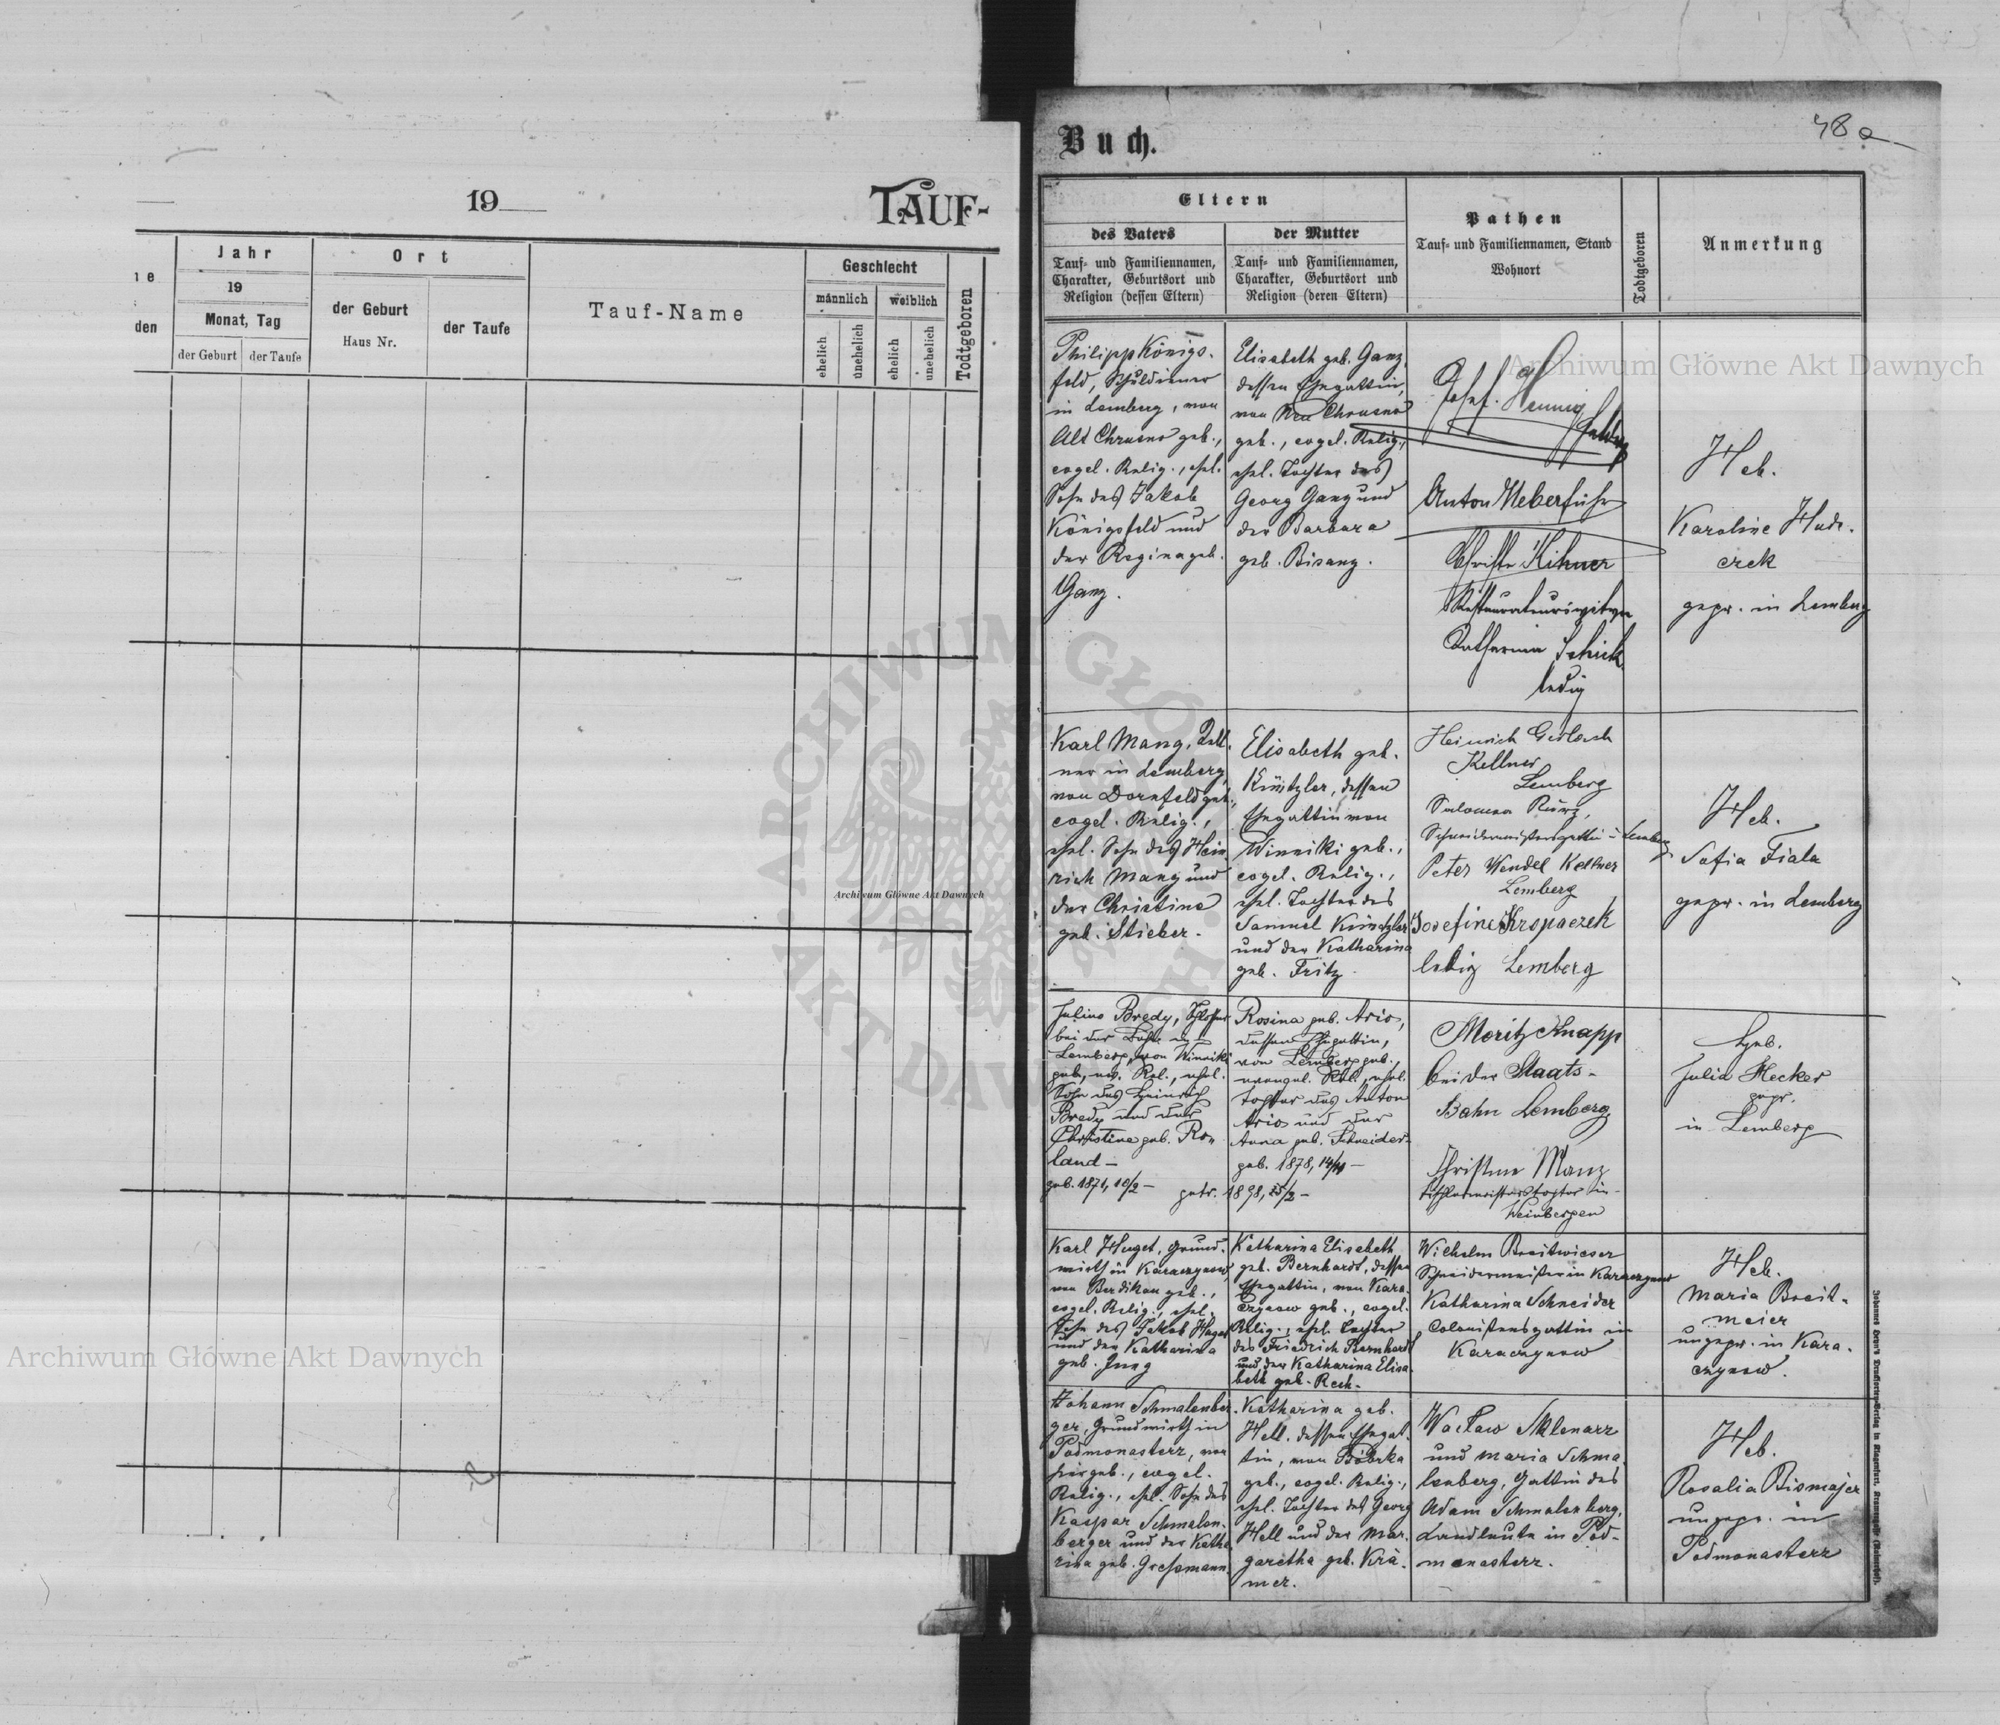 19
TAUF-
ne
den
Jahr
19
Monat, Tag
der Geburt
der Taufe
Ort
der Geburt
Haus Nr.
der Taufe
Tauf-Name
Geschlecht
männlich
weiblich
ehelich
unehelich
ehelich
unehelich
Todtgeboren
Buch.
48a
Eltern
des Vaters
Tauf- und Familiennamen,
Charakter, Geburtsort und
Religion (dessen Eltern)
der Mutter
Tauf- und Familiennamen,
Charakter, Geburtsort und
Religion (deren Eltern)
Pathen
Tauf- und Familiennamen, Stand
Wohnort
Todtgeboren
Anmerkung
Philipp Königs-
feld, Schuldiener
in Lemberg, von
Alt Chrusno geb.,
evgel. Relig., ehel.
Sohn des Jakob
Königsfeld und
der Regina geb.
Ganz.
Elisabeth geb. Ganz,
dessen Ehegattin,
von Neu Chrusno
geb., evgel. Relig.,
ehel. Tochter des
Georg Ganz und
der Barbara
geb. Bisanz.
Josef Hennig
Anton Ueberfuhr
Kihner
Katharina Schick
ledig
Heb.
Karoline Hude-
crek
gepr. in Lemberg
Karl Manz, Kell-
ner in Lemberg,
von Dornfeld geb.,
evgel. Relig.,
ehel. Sohn des Hein-
rich Manz und
der Christine
geb. Stieber.
Elisabeth geb.
Küntzler, dessen
Ehegattin von
Winniki geb.,
evgel. Relig.,
ehel. Tochter des
Samuel Küntzler
und der Katharina
geb. Fritz.
Heinrich Gerlach
Kellner
Lemberg
Salomea Kurz,
Schneidermeistersgattin in Lemberg
Peter Wendel Kellner
Lemberg
Josefine Kropaczek
ledig Lemberg
Heb.
Sofia Fiala
gepr. in Lemberg
Julius Bredy, Schlosser
bei der Bahn in
Lemberg, von Winniki
geb., ev. Rel., ehel.
Sohn des Heinrich
Bredy und der
Christine geb. Ro-
land –
geb. 1871, 10/2 –
Rosina geb. Ario,
dessen Ehegattin,
von Lemberg geb.,
evangel. Rel., ehel.
Tochter des Anton
Ario und der
Anna geb. Schneider
geb. 1878, 14/11 –
getr. 1898, 25/2 –
Moritz Knapp
bei der Staats-
Bahn Lemberg
Christine Manz
Tischlermeisterstochter in
Weinbergen
Heb.
Julia Hecker
gepr.
in Lemberg
Karl Huget, Grund-
wirth in Karaczynow,
von Berdikau geb.,
evgel. Relig., ehel.
Sohn des Jakob Huget
und der Katharina
geb. Jung
Katharina Elisabeth
geb. Bernhardt, dessen
Ehegattin, von Kara-
czynow geb., evgel.
Relig., ehel. Tochter
des Friedrich Bernhardt
und der Katharina Elisa-
beth geb. Rech.
Wilhelm Breitwieser
Schneidermeister in Karaczynow
Katharina Schneider
Colonistensgattin in
Karaczynow
Heb.
Maria Breit-
meier
ungepr. in Kara-
czynow.
Johann Schmalenber-
ger, Grundwirth in
Podmonasterz, von
hier geb., evgel.
Relig., ehel. Sohn des
Kaspar Schmalen-
berger und der Katha-
rina geb. Gressmann.
Katharina geb.
Hell, dessen Ehegat-
tin, von Bóbrka
geb., evgel. Relig.,
ehel. Tochter des Georg
Hell und der Mar-
garetha geb. Krä-
mer.
Wacław Sklenarz
und Maria Schma-
lenberg, Gattin des
Adam Schmalenberg,
Landleute in Pod-
monasterz.
Heb.
Rosalia Bismajer
ungepr. in
Podmonasterz
Archiwum Główne Akt Dawnych
Archiwum Główne Akt Dawnych
Archiwum Główne Akt Dawnych
ARCHIWUM GŁÓWNE AKT DAWNYCH